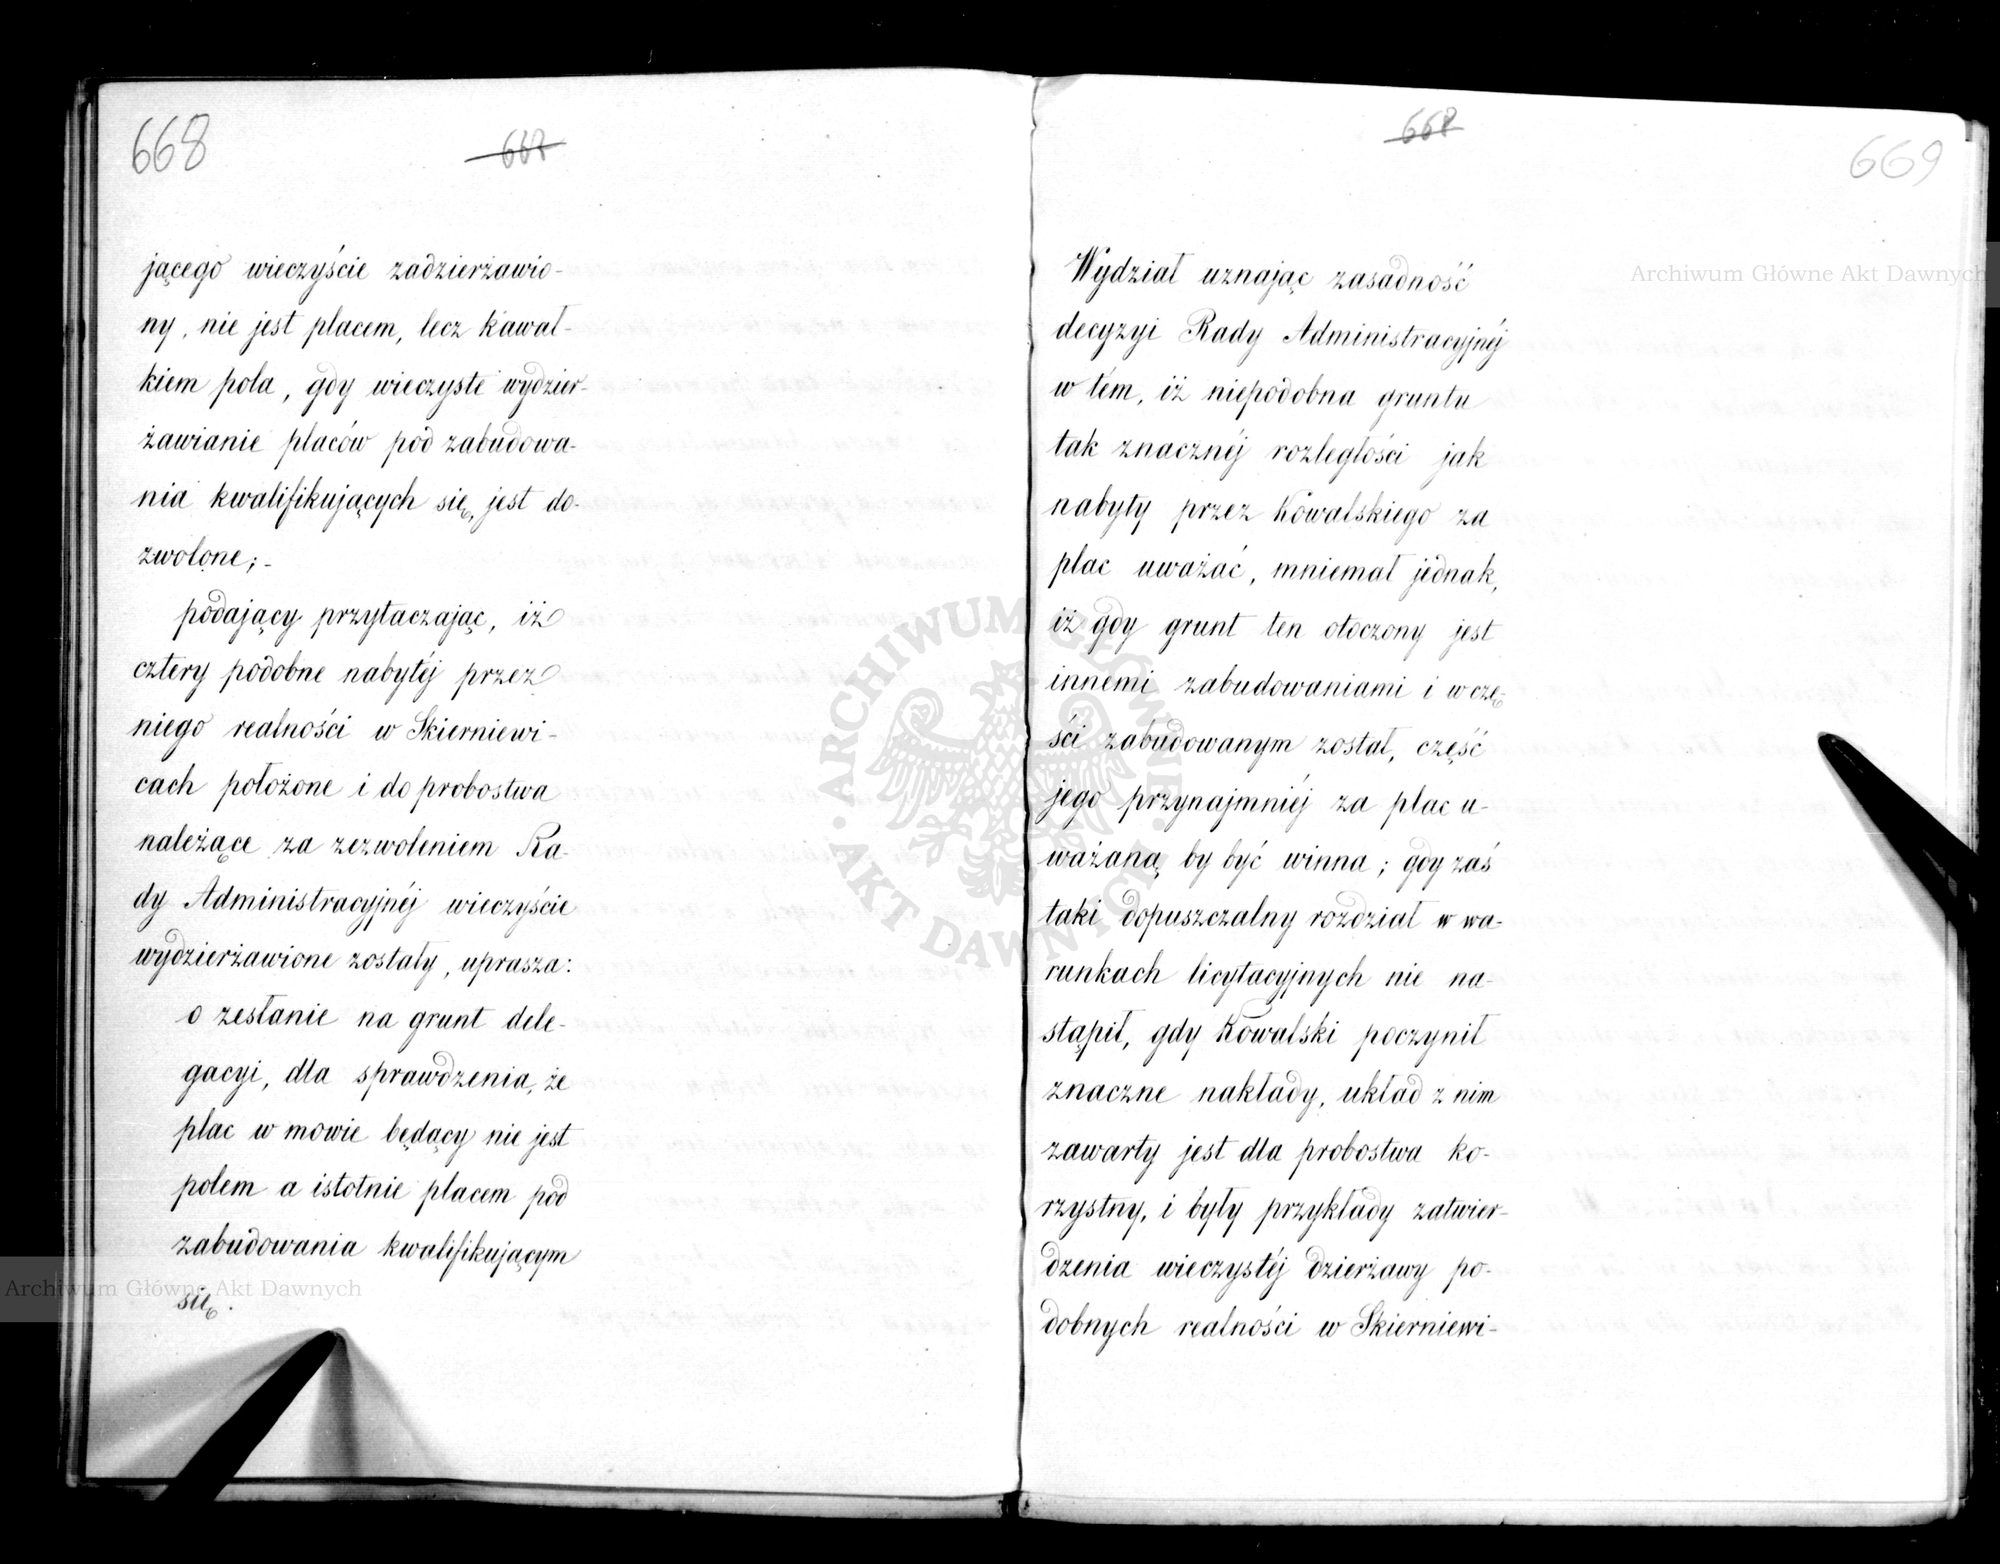 668
667
jącego wieczyście zadzierżawio-
ny, nie jest placem, lecz kawał-
kiem pola, gdy wieczyste wydzier-
żawianie placów pod zabudowa-
nia kwalifikujących się, jest do-
zwolone;-
podający przytaczając, iż
cztery podobne nabytéj przez
niego realności w Skierniewi-
cach położone i do probostwa
należące za zezwoleniem Ra-
dy Administracyjnéj wieczyście
wydzierżawione zostały, uprasza:
o zesłanie na grunt dele-
gacyi, dla sprawdzenia, że
plac w mowie będący nie jest
polem a istotnie placem pod
zabudowania kwalifikującym
się.
668
669
Wydział uznając zasadność
decyzyi Rady Administracyjnéj
w tém, iż niepodobna gruntu
tak znacznéj rozległości jak
nabyty przez Kowalskiego za
plac uważać, mniemał jednak,
iż gdy grunt ten otoczony jest
innemi zabudowaniami i w czę-
ści zabudowanym został, część
jego przynajmniéj za plac u-
ważaną by być winna; gdy zaś
taki dopuszczalny rozdział w wa-
runkach licytacyjnych nie na-
stąpił, gdy Kowalski poczynił
znaczne nakłady, układ z nim
zawarty jest dla probostwa ko-
rzystny, i były przykłady zatwier-
dzenia wieczystéj dzierżawy po-
dobnych realności w Skierniewi-
Archiwum Główne Akt Dawnych
Archiwum Główne Akt Dawnych
ARCHIWUM GŁÓWNE AKT DAWNYCH